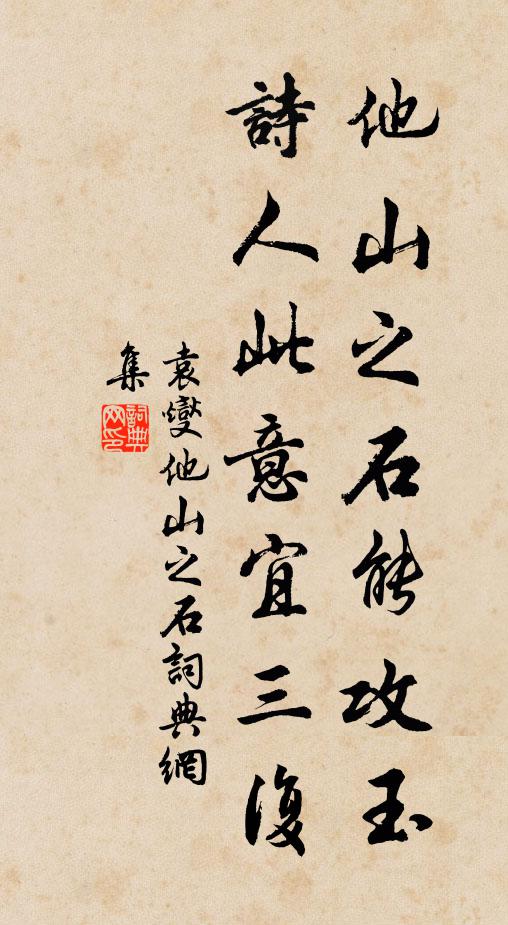 他山之石能攻玉
詩人此意宜三復
袁燮他山之石詞典網
集
詞典网印